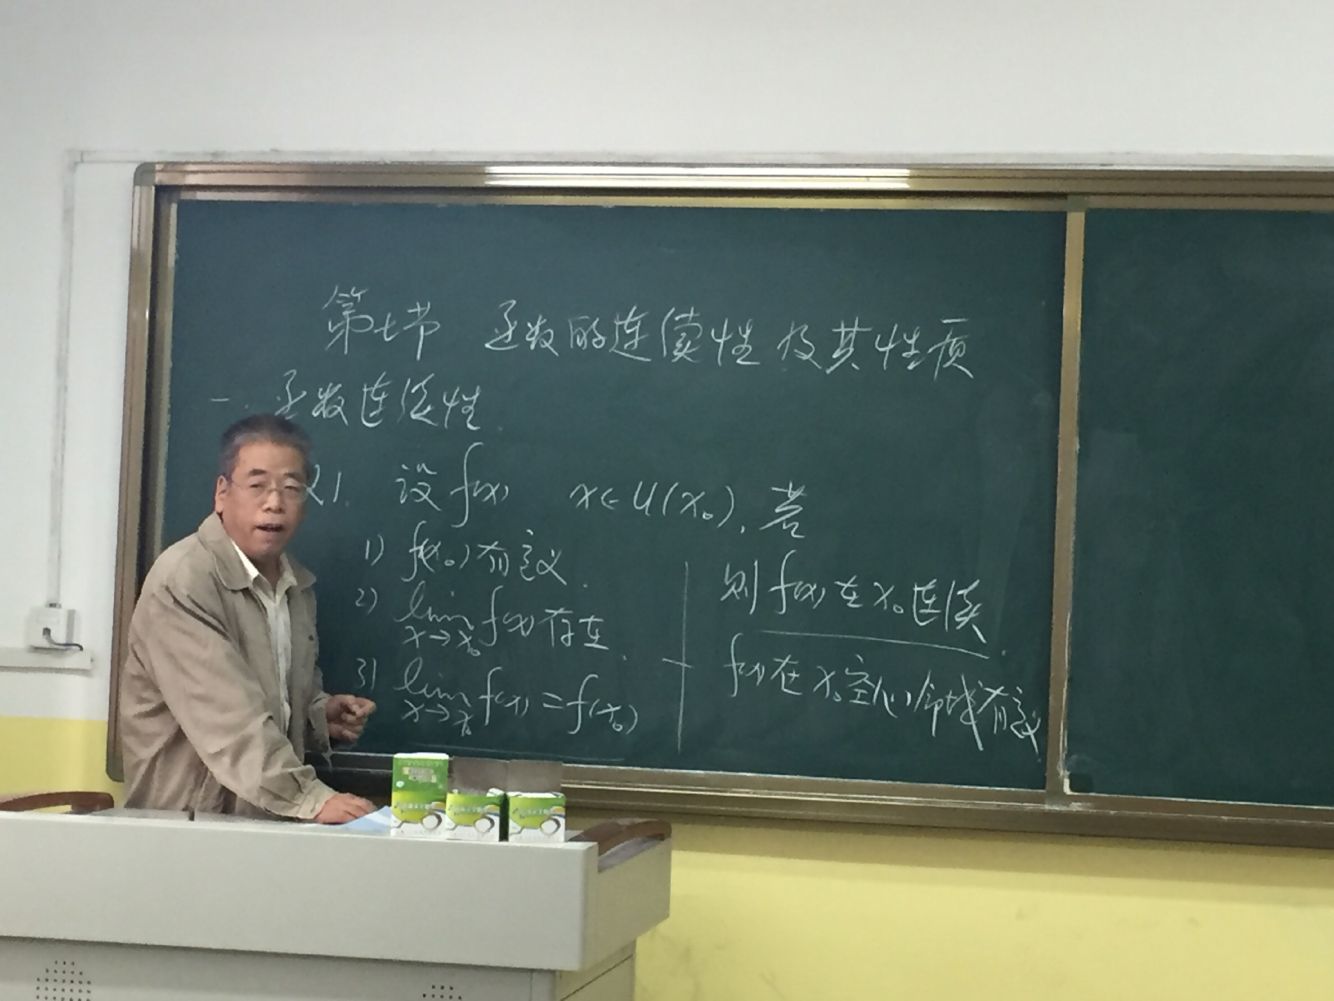 第七节 函数的连续性及其性质
一. 函数连续性
义1. 设f(x) x∈U(x₀), 若
1) f(x₀)有定义.
2) lim x→x₀ f(x)存在.
3) lim x→x₀ f(x)=f(x₀)
则f(x)在x₀连续.
f(x)在x₀空心邻域有定义